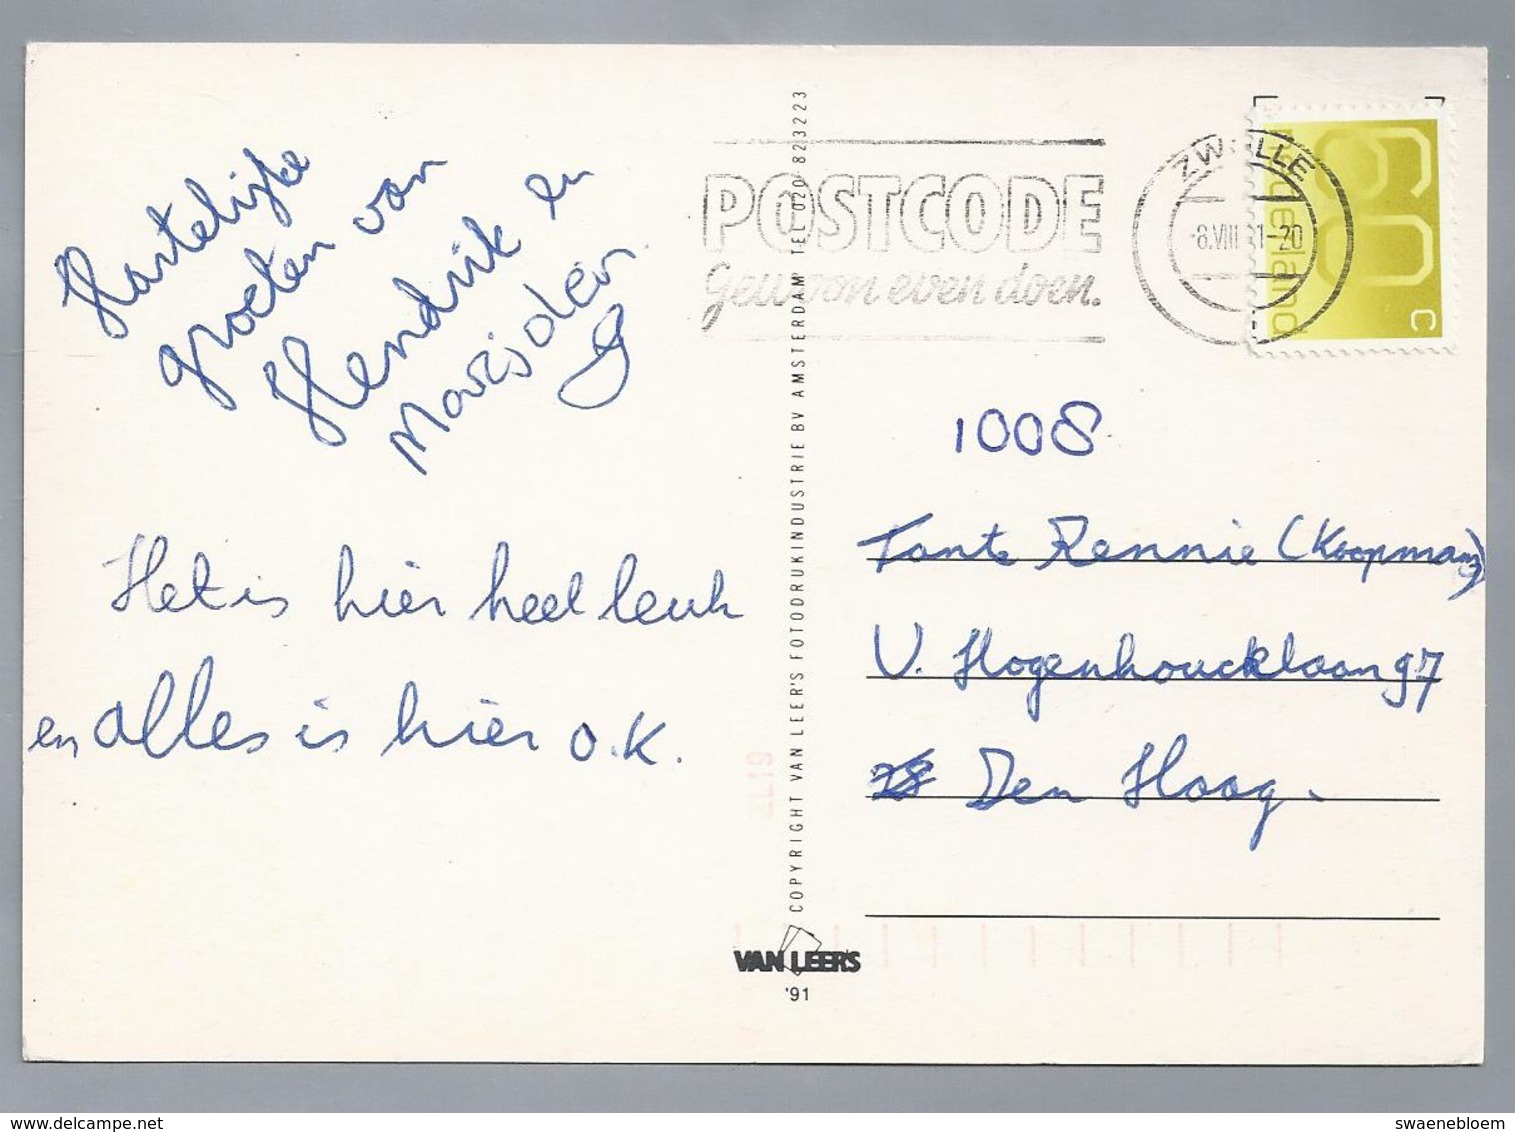 Hartelijke
groeten van
Hendrik en
Het is hier heel leuk
en alles is hier o.k.
COPYRIGHT VAN LEER'S FOTODRUKINDUSTRIE BV AMSTERDAM TEL 020 823223
VAN LEER'S
'91
ZL19
POSTCODE
gewoon even doen.
ZWOLLE
-8.VIII 1-20
60
C
1008
Tante Rennie (Koopman)
V. Hogenhoucklaan 97
Den Haag.
delcampe.net
swaenebloem